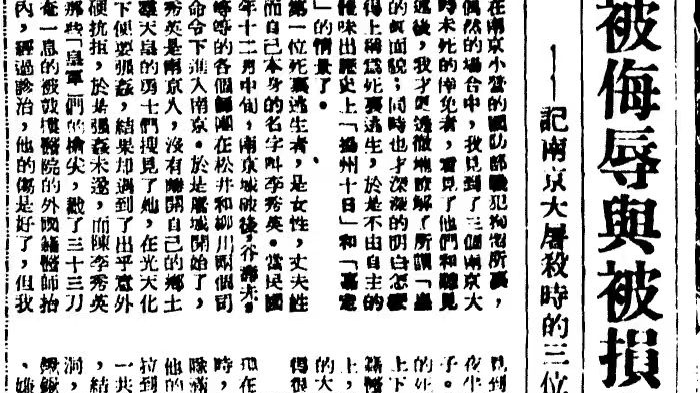 被侮辱與被損
——記南京大屠殺時的三位
在南京小營的國防部戰犯拘留所裏，
偶然的場合中，我見到了三個南京大
時未死的倖免者，看見了他們和聽見
述後，我才更透徹地瞭解了所謂「皇
的眞面貌；同時也才深深的明白怎麼
得上稱爲死裏逃生，於是不由自主的
味出歷史上「揚州十日」和「嘉定
」的情景了。
第一位死裏逃生者，是女性，丈夫姓
而自己本身的名字叫李秀英。當民國
年十二月中旬，南京城破後，谷壽夫，
等的各個師團在松井和柳川兩個司
命令下進入南京。於是屠城開始了，
秀英是南京人，沒有離開自己的鄉土
天皇的勇士們搜見了她，在光天化
下便要强姦，結果却遇到了出乎意外
硬抗拒，於是强姦未遂，而陳李秀英
那些「皇軍」們的槍尖，戳了三十三刀
奄一息的被鼓樓醫院的外國籍醫師抬
內，經過診治，他的傷是好了，但我
見到
夜半
子。
的死
上下
上，
的大
得很
現在
時，
隊
他的
拉到
一共
，結
洞，
、嫌